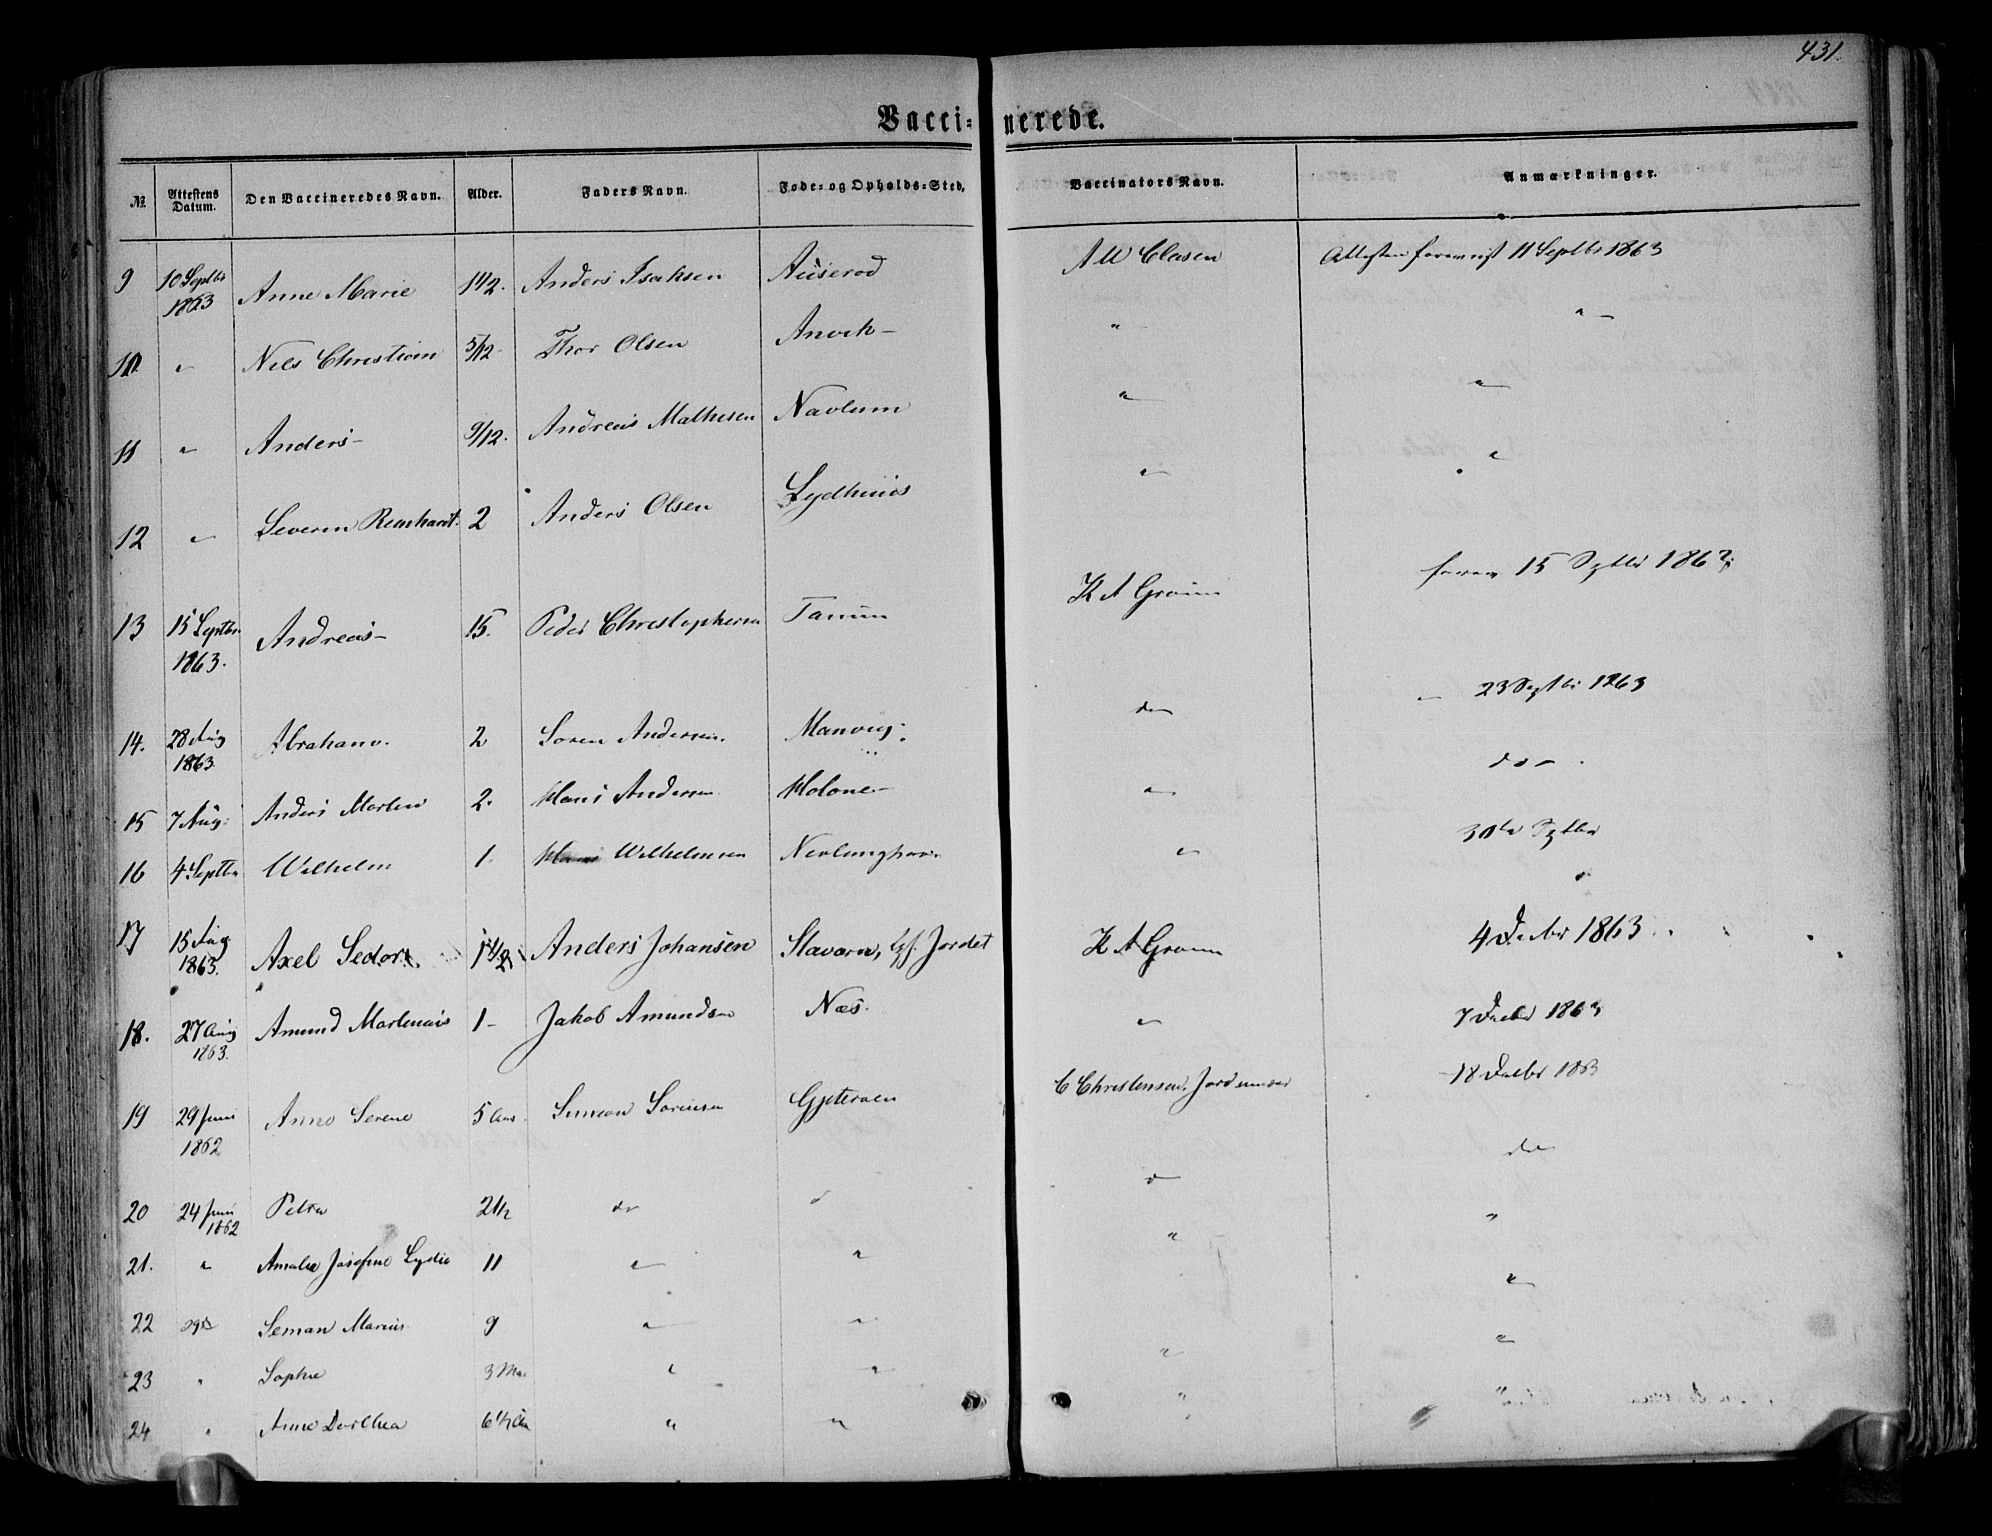 431.
Vaccinerede.
№ Attestens Datum. Den Vaccineredes Navn. Alder. Faders Navn. Føde- og Opholds-Sted. Vaccinators Navn. Anmærkninger.
9 10 Septbr 1863 Anne Marie 1 1/2. Anders Isaksen Auserød Clasen Attesten 11 Septbr 1863
10. " Nils Christian 5/12 Thor Olsen Anvik " "
11 " Anders 9/12. Andreas Mathesen Navlum " "
12 " Severin Reinhardt. 2 Anders Olsen Lydhuus " "
13 15 Septbr. 1863. Andreas 15. Peder Christophersen Tanum K A Grønn 15 Septbr 1863
14. 28 Aug 1863 Abraham. 2 Soren Andersen. Manvig. do 23 Septbr 1863
15 7 Aug: Anders Martin 2. Hans Andersen " do
16 4 Septbr Wilhelm 1. Hans Wilhelmsen Nevlunghavn " 30te Septbr
17 15 Aug 1863. Axel Sedor 1 1/2 Anders Johansen Staværn, Jordet K A Grønn 4 Decbr 1863
18. 27 Aug 1863. Amund Martinius 1 Jakob Amundsen Næs. " 7 Decbr 1863
19 29 Juni 1862 Anne Serene 5 Aar. Simeon Sorensen C Christensen, Jordemoder 18 Decbr 1863
20 24 Juni 1862 Petra 2 1/2 do do do do
21. " Amalie Josefine Lydie 11 " " " "
22 29de Seman Marius 9 " " "
23 " Sophie 3 Ma. " " " "
24 " Anne Dorthea 6 1/2 Aar " " " "